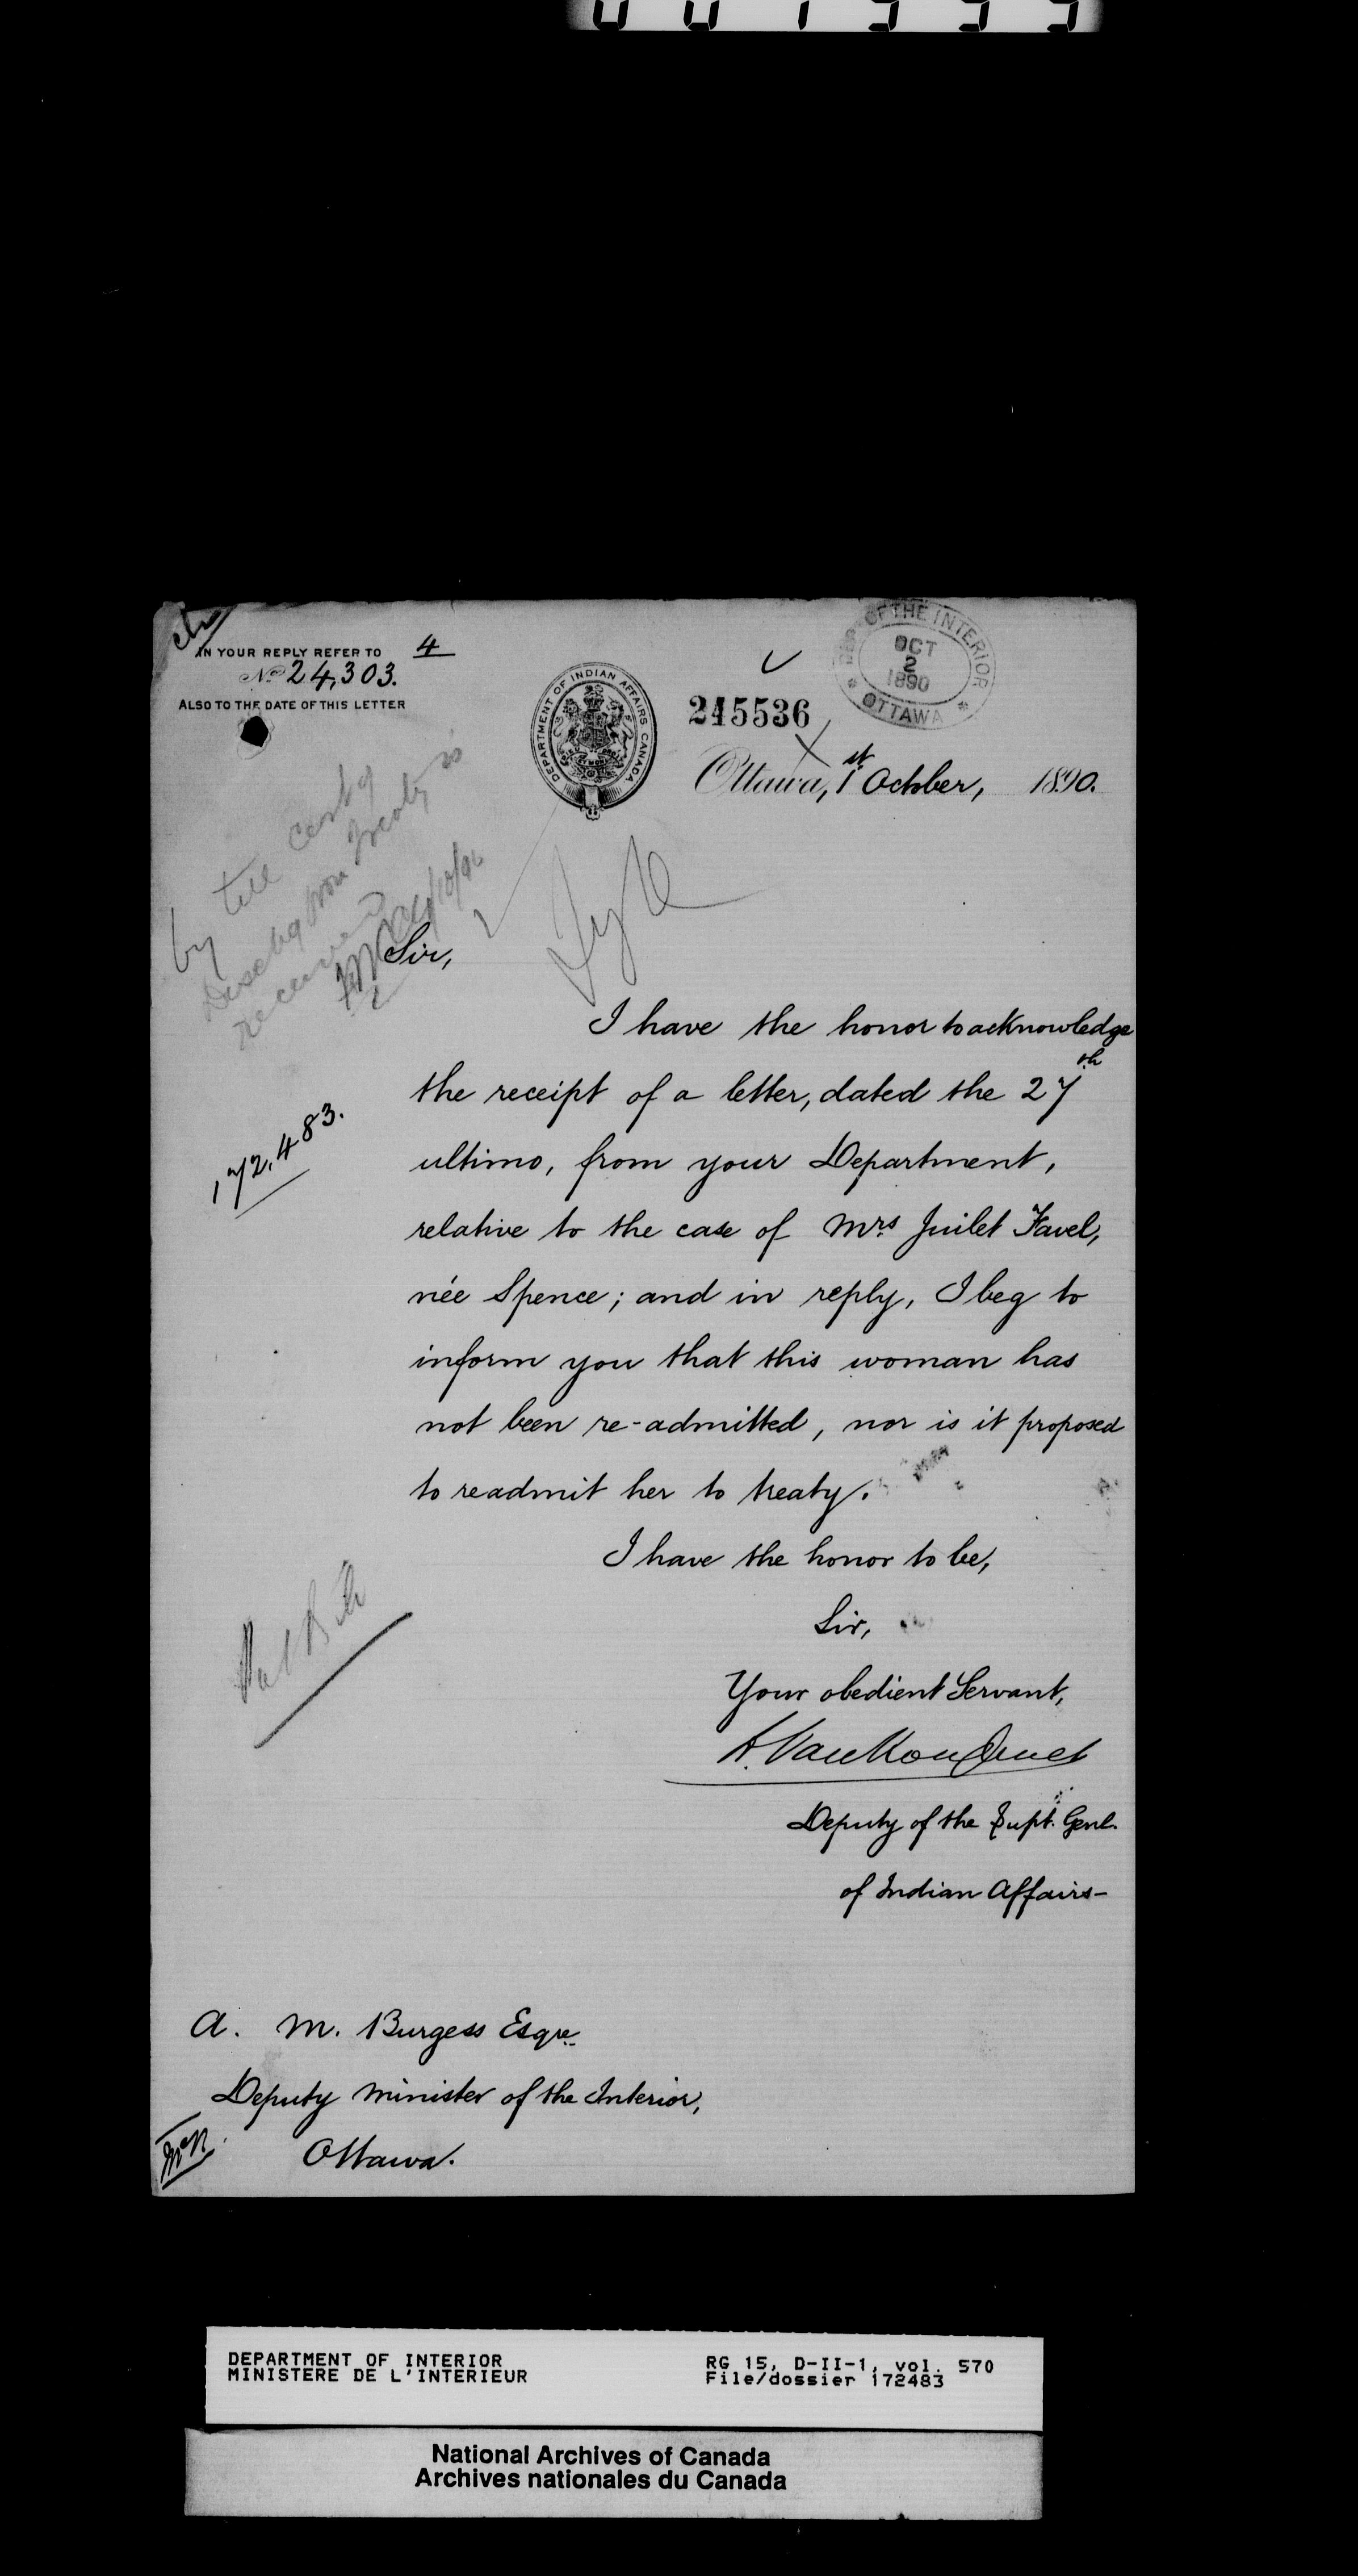 IN YOUR REPLY REFER TO 4
No 24,303.
ALSO TO THE DATE OF THIS LETTER
DEPARTMENT OF INDIAN AFFAIRS CANADA
245536
DEPT OF THE INTERIOR
OCT
2
1890
OTTAWA
Ottawa, 1st October, 1890.
by till
Discharge from Treaty is
received
Sir,
I have the honor to acknowledge
the receipt of a letter, dated the 27th
172,483.
ultimo, from your Department,
relative to the case of Mrs Juilet Favel,
née Spence; and in reply, I beg to
inform you that this woman has
not been re-admitted, nor is it proposed
to readmit her to treaty.
I have the honor to be,
Sir,
Your obedient Servant,
L. VanKoughnet
Deputy of the Supt. Genl.
of Indian Affairs-
A. M. Burgess Esqre
Deputy Minister of the Interior,
Ottawa.
DEPARTMENT OF INTERIOR
MINISTERE DE L'INTERIEUR
RG 15, D-II-1, vol. 570
File/dossier 172483
National Archives of Canada
Archives nationales du Canada